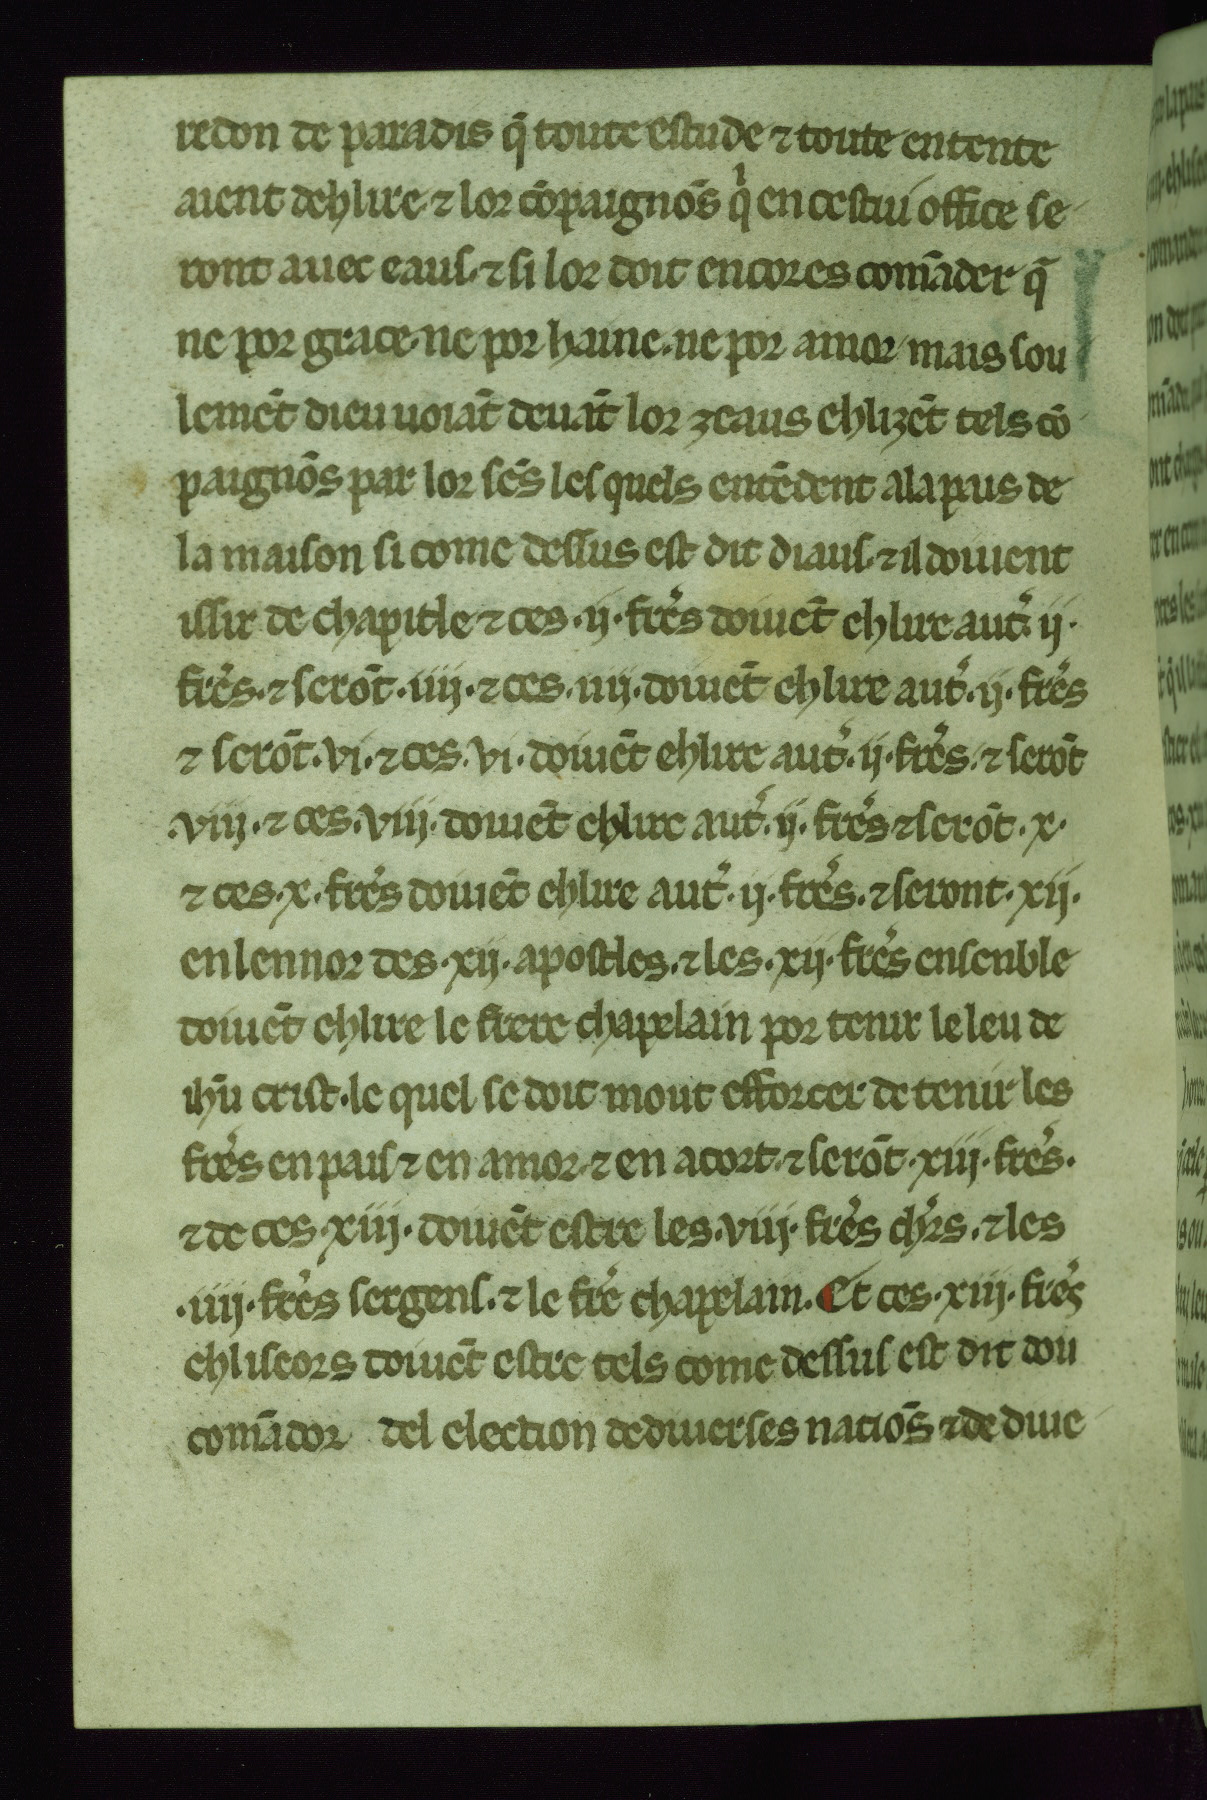 redon de paradis q̄ toute estude ⁊ toute entente
aient dehlire ⁊ lor cōpaignōs qⁱ en cestui office se
ront auec eaus ⁊ si lor doit encores comāder q̄
ne por grace ne por haine ne por amor mais sou
lemēt dieu uoiāt deuāt lor zeaus ehlizēt tels cō
paignōs par lor sēs les quels entēdent a la pais de
la maison si come dessus est dit diaus ⁊ il doiuent
issir de chapitle ⁊ ces .ij. fre᷒s doiuēt ehlire aut᷒ ij.
fre᷒s. ⁊ serōt .iiij. ⁊ ces .iiij. doiuēt ehlire aut᷒ .ij. fre᷒s
⁊ serōt .vi. ⁊ ces .vi. doiuēt ehlire aut᷒. ij. fre᷒s. ⁊ serōt
.viij. ⁊ ces .viij. doiuēt ehlire aut᷒. ij. fre᷒s ⁊ serōt .x.
⁊ ces .x. fre᷒s doiuēt ehlire aut᷒. ij. fre᷒s. ⁊ seront .xij.
en lennor des .xij. apostles. ⁊ les .xij. fre᷒s ensenble
doiuēt ehlire le frere chapelain por tenir le leu de
ihū crist. le quel se doit mout efforcer de tenir les
fre᷒s en pais ⁊ en amor ⁊ en acort. ⁊ serōt .xiij. fre᷒s.
⁊ de ces .xiij. doiuēt estre les .viij. fre᷒s chr᷒s. ⁊ les
.iiij. fre᷒s sergens. ⁊ le fre᷒ chapelain. Et ces .xiij. fre᷒s
ehliseors doiuēt estre tels come dessus est dit dou
comādor del election de diuerses natiōs ⁊ de diue